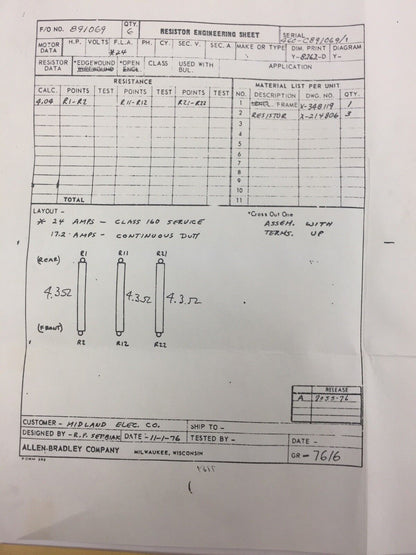 F/O NO. 891069 QTY. 6 RESISTOR ENGINEERING SHEET SERIAL
MOTOR DATA H.P. VOLTS F.L.A. *24 PH. CY. SEC. V. SEC. A. MAKE OR TYPE DIM. PRINT Y-8262-D DIAGRAM Y-
RESISTOR DATA *EDGEWOUND *OPEN CLASS USED WITH BUL. APPLICATION
RESISTANCE MATERIAL LIST PER UNIT
CALC. POINTS TEST POINTS TEST POINTS TEST NO. DESCRIPTION DWG. NO. QTY.
4.04 R1-R2 R11-R12 R21-R22 1 FRAME V-348119 1
2 RESISTOR X-214806 3
3
4
5
6
7
8
9
10
TOTAL 11
LAYOUT - *Cross Out One
* 24 AMPS - CLASS 160 SERVICE ASSEM. WITH
17.2 AMPS - CONTINUOUS DUTY TERMS. UP
(REAR) R1 R11 R21
4.3Ω 4.3Ω 4.3Ω
(FRONT) R2 R12 R22
RELEASE
A
CUSTOMER - MIDLAND ELEC. CO. SHIP TO -
DESIGNED BY - R.F. DATE - 11-1-76 TESTED BY - DATE -
ALLEN-BRADLEY COMPANY MILWAUKEE, WISCONSIN GR - 7616